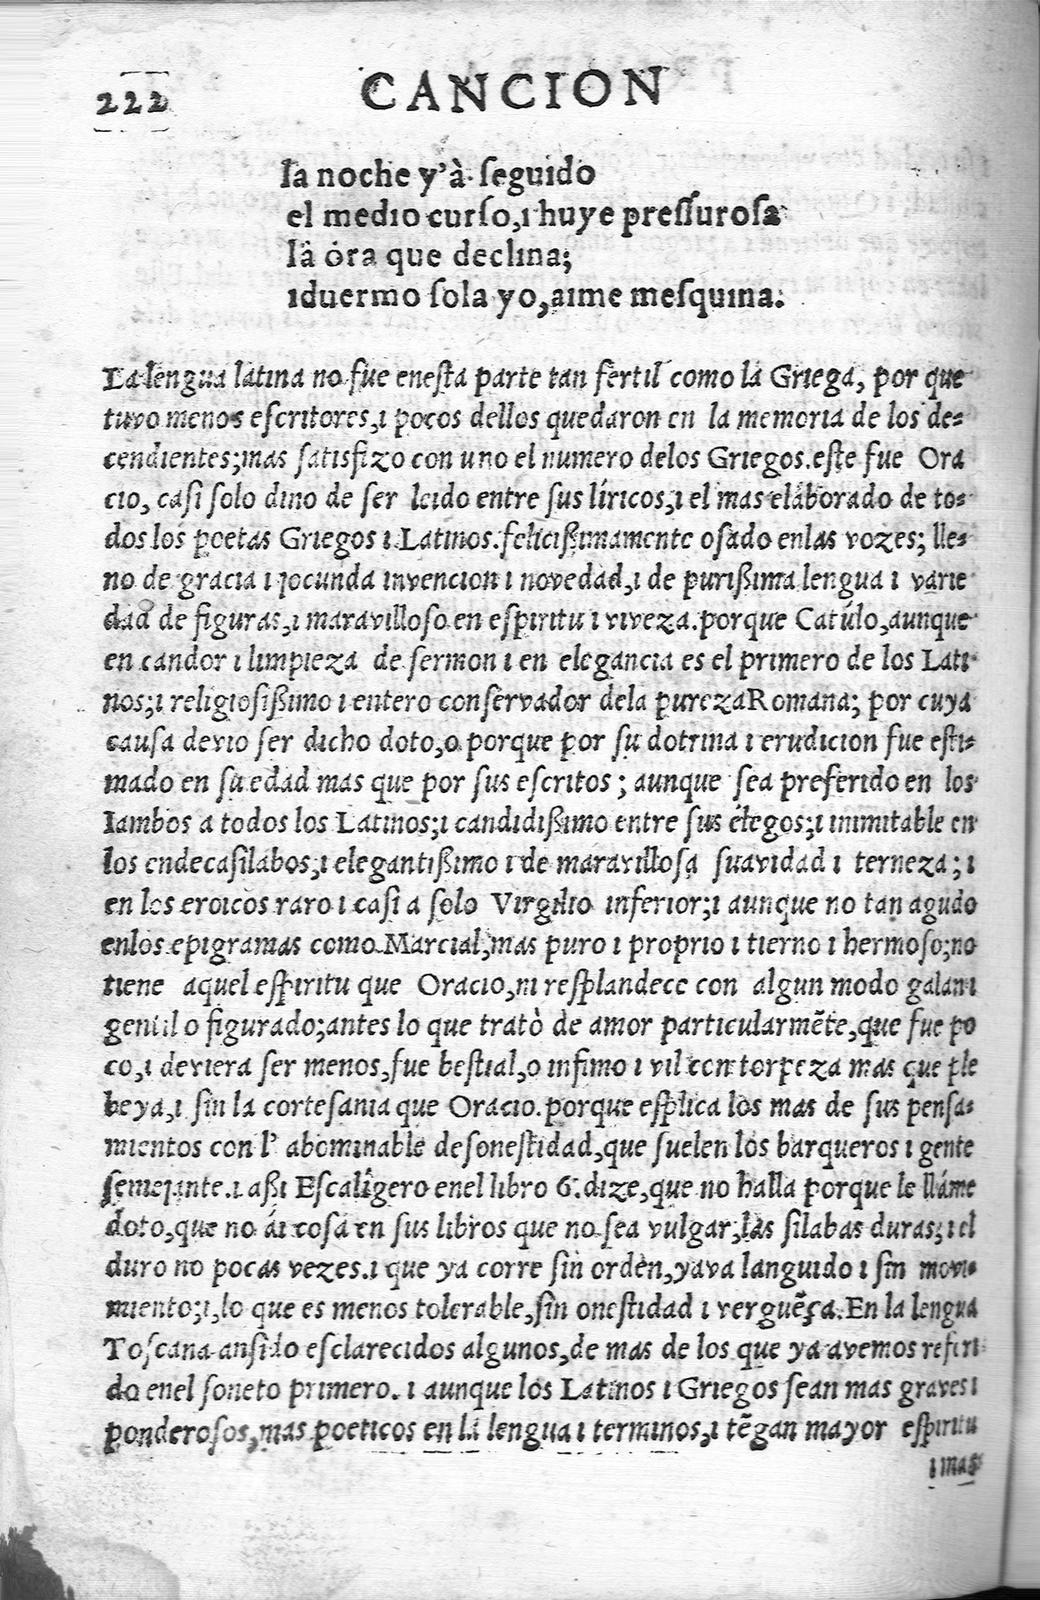 222 CANCION
la noche y'à seguido
el medio curſo,ı huye preſſuroſa
la óra que declina;
ıduermo ſola yo,aime meſquina.
La lengua latina no fue eneſta parte tan fertil como la Griega, por que
tuvo menos eſcritores,ı pocos dellos quedaron en la memoria de los de=
cendientes;mas ſatisfizo con uno el numero delos Griegos.eſte fue Ora
cio, caſi ſolo dino de ſer leido entre ſus líricos,ı el mas elaborado de to=
dos los poetas Griegos ı Latinos.felicißimamente oſado enlas vozes; lle=
no de gracia ı jocunda invencion ı novedad,ı de purißima lengua ı varie
dad de figuras,ı maravilloſo en eſpiritu ı viveza.porque Catúlo,aunque
en candor ı limpieza de ſermon ı en elegancia es el primero de los Lati
nos;ı religioſißimo ı entero conſervador dela pureza Romana; por cuya
cauſa devio ſer dicho doto,o porque por ſu dotrina ı erudicion fue eſti=
mado en ſu edad mas que por ſus eſcritos; aunque ſea preferido en los
Iambos a todos los Latinos;ı candidißimo entre ſus élegos;ı inimitable en
los endecaſilabos,ı elegantißimo ı de maravilloſa ſuavidad ı terneza; ı
en los eroicos raro ı caſi a ſolo Virgilio inferior;ı aunque no tan agudo
enlos epigramas como Marcial,mas puro ı proprio ı tierno ı hermoſo;no
tiene aquel eſpiritu que Oracio,ni reſplandece con algun modo galan ı
gentil o figurado;antes lo que tratò de amor particularmẽte,que fue po
co,ı deviera ſer menos,fue beſtial,o infimo ı vil con torpeza mas que ple
beya,ı ſin la corteſania que Oracio.porque eſplica los mas de ſus penſa=
mientos con l' abominable deſoneſtidad,que ſuelen los barqueros ı gente
ſemejante.ı aßi Eſcalígero enel libro 6.dize,que no halla porque le lláme
doto,que no ái coſa en ſus libros que no ſea vulgar,las ſilabas duras;ı el
duro no pocas vezes.ı que ya corre ſin ordèn,ya va languido ı ſin movi=
miento;ı,lo que es menos tolerable,ſin oneſtidad ı verguẽça.En la lengua
Toſcana an ſido eſclarecidos algunos,de mas de los que ya avemos referi
do enel ſoneto primero. ı aunque los Latinos ı Griegos ſean mas graves ı
ponderoſos,mas poeticos en la lengua ı terminos,ı tẽgan mayor eſpiritu
ı mas